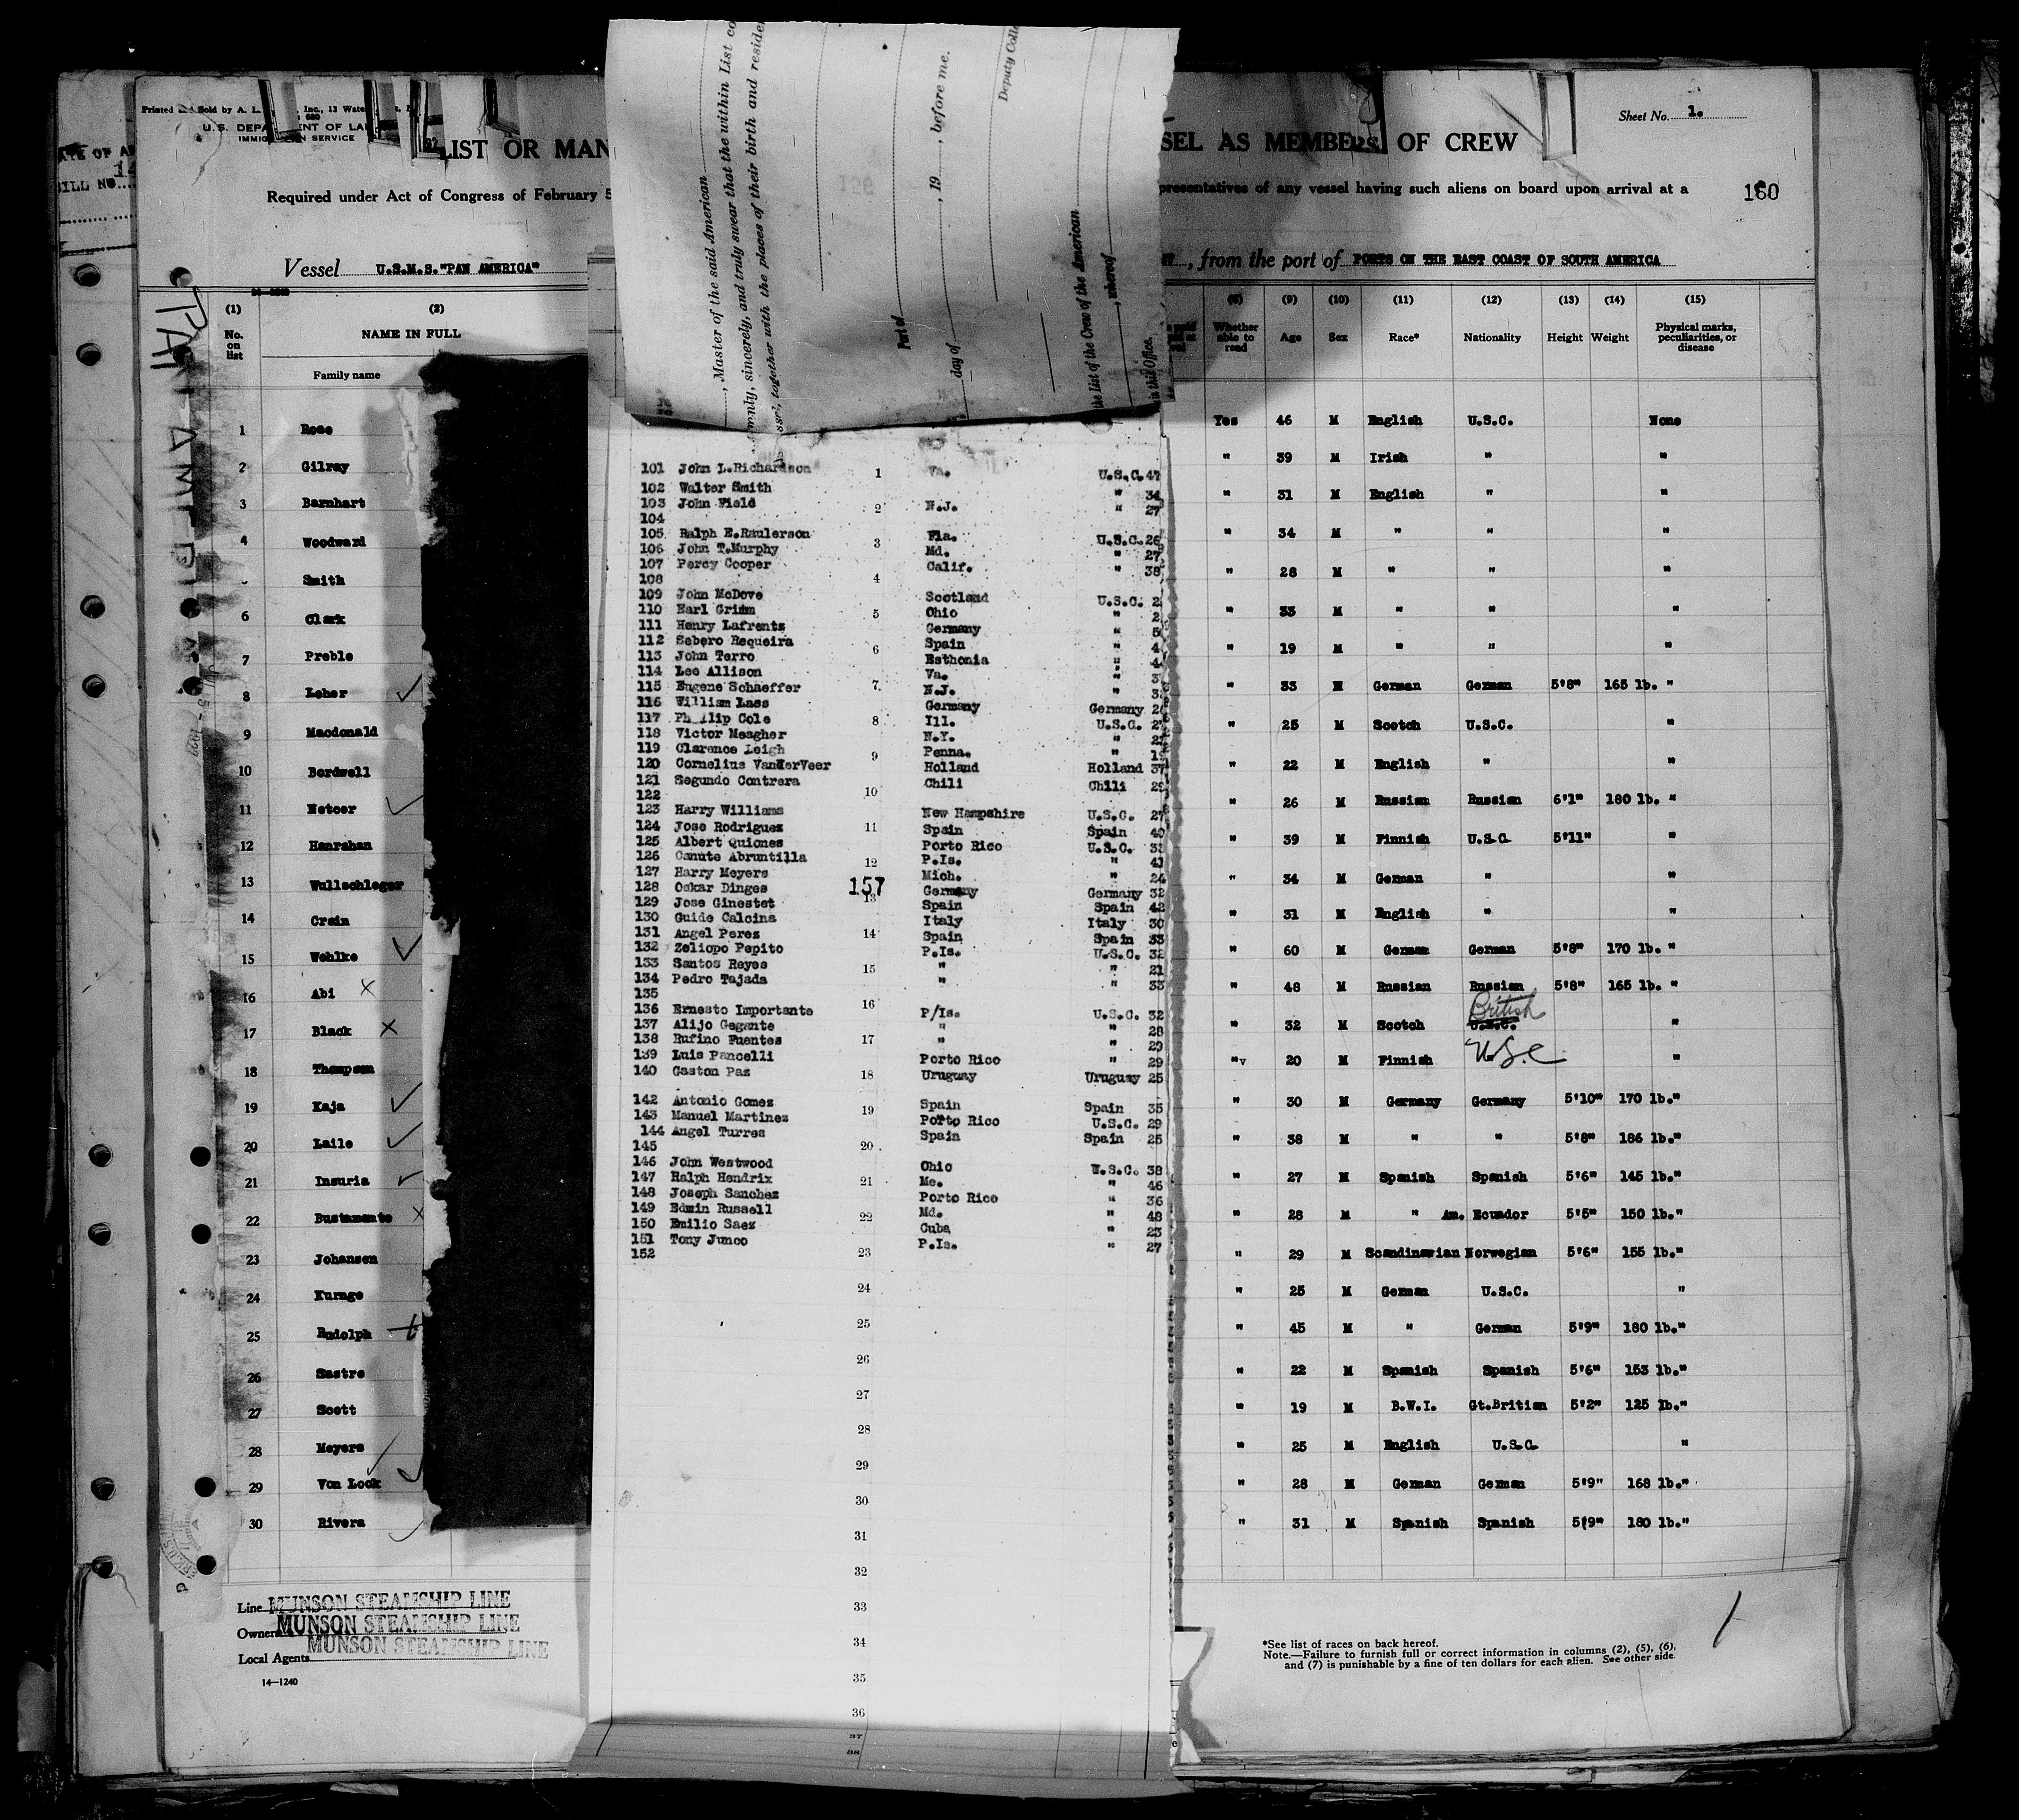 Printed and Sold by A. L. Inc., 13 Wate
U.S. DEPA ENT OF LA
IMMIG N SERVICE
Sheet No. 1.
LIST OR MAN SEL AS MEMBERS OF CREW
Required under Act of Congress of February 5 presentatives of any vessel having such aliens on board upon arrival at a
160
Vessel U.S.M.S."PAN AMERICA" , from the port of PORTS ON THE EAST COAST OF SOUTH AMERICA
, Master of the said American
mnly, sincerely, and truly swear that the within List co
together with the places of their birth and reside
Port of
day of , 19 , before me.
Deputy Coll
the List of the Crew of the American
, whereof
in this Office.
(1) (2) (8) (9) (10) (11) (12) (13) (14) (15)
No. on list NAME IN FULL Whether able to read Age Sex Race* Nationality Height Weight Physical marks, peculiarities, or disease
Family name
1 Rose Yes 46 M English U.S.C. None
2 Gilray " 39 M Irish " "
3 Barnhart " 31 M English " "
4 Woodward " 34 M " " "
Smith " 28 M " " "
6 Clark " 33 M " " "
7 Preble " 19 M " " "
8 Leher " 33 M German German 5'8" 165 lb. "
9 Macdonald " 25 M Scotch U.S.C. "
10 Bordwell " 22 M English " "
11 Netcer " 26 M Russian Russian 6'1" 180 lb. "
12 Hanrahan " 39 M Finnish U.S.C. 5'11" "
13 Wullschleger " 34 M German " "
14 Crain " 31 M English " "
15 Wohlke " 60 M German German 5'8" 170 lb. "
16 Abi " 48 M Russian Russian 5'8" 165 lb. "
17 Black " 32 M Scotch U.S.C. British "
18 Thompson " 20 M Finnish U.S.C "
19 Kaja " 30 M Germany Germany 5'10" 170 lb."
20 Laile " 38 M " " 5'8" 186 lb."
21 Insuria " 27 M Spanish Spanish 5'6" 145 lb."
22 Bustamente " 28 M " Am. Ecuador 5'5" 150 lb."
23 Johansen " 29 M Scandinavian Norwegian 5'6" 155 lb."
24 Kurnge " 25 M German U.S.C. "
25 Rudolph " 45 M " German 5'9" 180 lb."
26 Sastre " 22 M Spanish Spanish 5'6" 153 lb."
27 Scott " 19 M B.W.I. Gt.Britian 5'2" 125 lb."
28 Meyers " 25 M English U.S.C. "
29 Von Look " 28 M German German 5'9" 168 lb."
30 Rivera " 31 M Spanish Spanish 5'9" 180 lb."
101 John L.Richardson 1 Va. U.S.C. 47
102 Walter Smith " 34
103 John Field 2 N.J. " 27
104
105 Ralph E.Raulerson 3 Fla. U.S.C. 26
106 John T.Murphy Md. " 27
107 Percy Cooper Calif. " 38
108 4
109 John McDove Scotland U.S.C. 2
110 Earl Grimm 5 Ohio " 2
111 Henry Lafrentz Germany " 5
112 Sebero Requeira 6 Spain " 4
113 John Terro Esthonia " 4
114 Lee Allison Va. " 3
115 Eugene Schaeffer 7 N.J. " 3
116 William Lass Germany Germany 2
117 Phillip Cole 8 Ill. U.S.C. 2
118 Victor Meagher N.Y. " 2
119 Clarence Leigh 9 Penna. " 19
120 Cornelius VanderVeer Holland Holland 37
121 Segundo Contrera Chili Chili 29
122 10
123 Harry Williams New Hampshire U.S.C. 27
124 Jose Rodriguez 11 Spain Spain 40
125 Albert Quiones Porto Rico U.S.C. 31
126 Canute Abruntilla 12 P.Is. " 41
127 Harry Meyers Mich. " 24
128 Oskar Dinges 157 Germany Germany 32
129 Jose Ginestet 13 Spain Spain 42
130 Guido Calcina Italy Italy 30
131 Angel Perez 14 Spain Spain 33
132 Zeliopo Pepito P.Is. U.S.C. 32
133 Santos Reyes 15 " " 21
134 Pedro Tajada " " 33
135
136 Ernesto Importante 16 P/Is. U.S.C. 32
137 Alijo Gegante " " 28
138 Rufino Fuentes 17 " " 29
139 Luis Pancelli Porto Rico " 29
140 Gaston Paz 18 Uruguay Uruguay 25
142 Antonio Gomez Spain Spain 35
143 Manuel Martinez 19 Porto Rico U.S.C. 29
144 Angel Turres Spain Spain 25
145 20
146 John Westwood Ohio U.S.C. 38
147 Ralph Hendrix 21 Me. " 46
148 Joseph Sanchez Porto Rico " 36
149 Edwin Russell Md. " 48
150 Emilio Saez 22 Cuba " 23
151 Tony Junco P.Is. " 27
152 23
24
25
26
27
28
29
30
31
32
33
34
35
36
37
38
Line MUNSON STEAMSHIP LINE
Owners MUNSON STEAMSHIP LINE
Local Agents MUNSON STEAMSHIP LINE
14—1240
*See list of races on back hereof.
Note.—Failure to furnish full or correct information in columns (2), (5), (6),
and (7) is punishable by a fine of ten dollars for each alien. See other side.